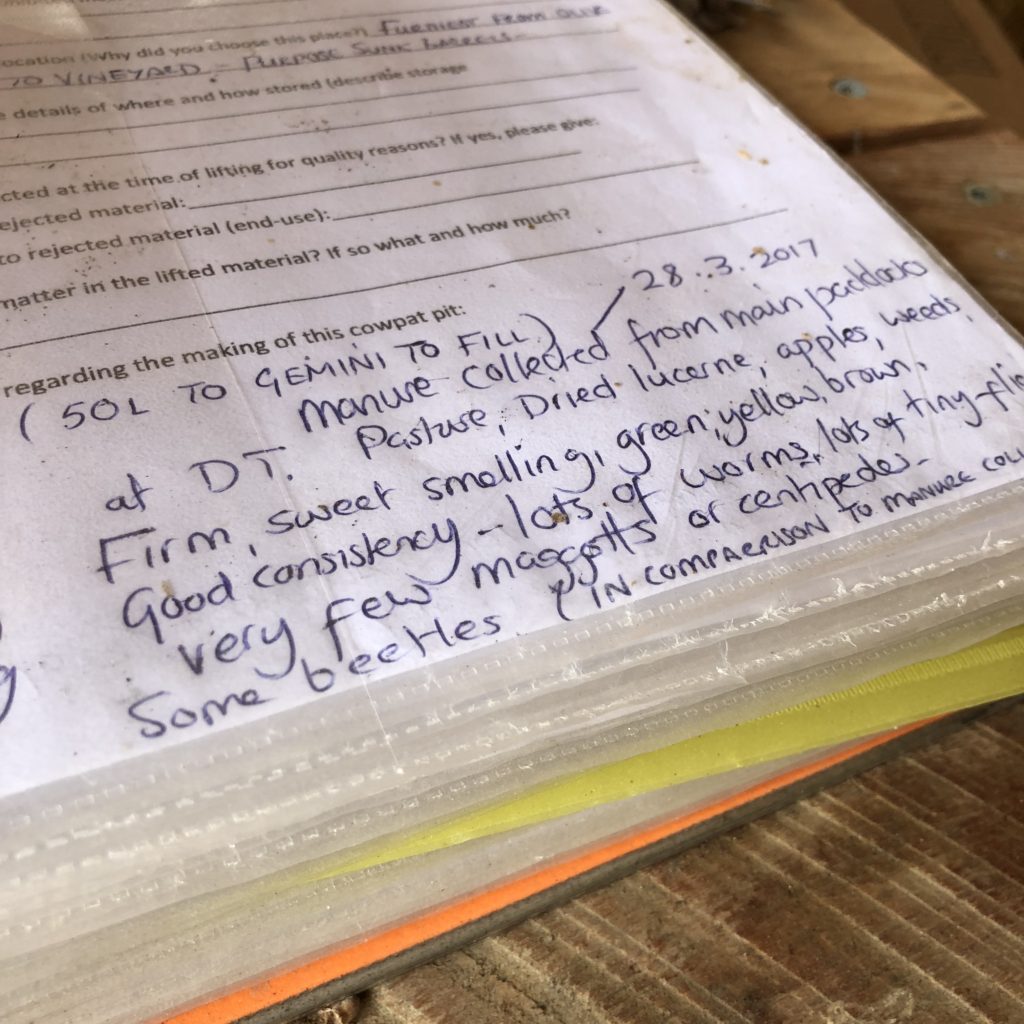 ocation (Why did you choose this place?) FURTHEST FROM OUR
TO VINEYARD. PURPOSE SUNK BARRELS
e details of where and how stored (describe storage
cted at the time of lifting for quality reasons? If yes, please give:
ejected material:
to rejected material (end-use):
matter in the lifted material? If so what and how much?
regarding the making of this cowpat pit:
28.3.2017
(50L TO GEMINI TO FILL)
manure collected from main paddocks
at DT. Pasture, Dried lucerne, apples, weeds.
Firm, sweet smelling, green, yellow, brown.
Good consistency - lots of worms, lots of tiny-flie
very few maggotts or centipedes.
Some beetles. (IN COMPAERISON TO MANURE COLL